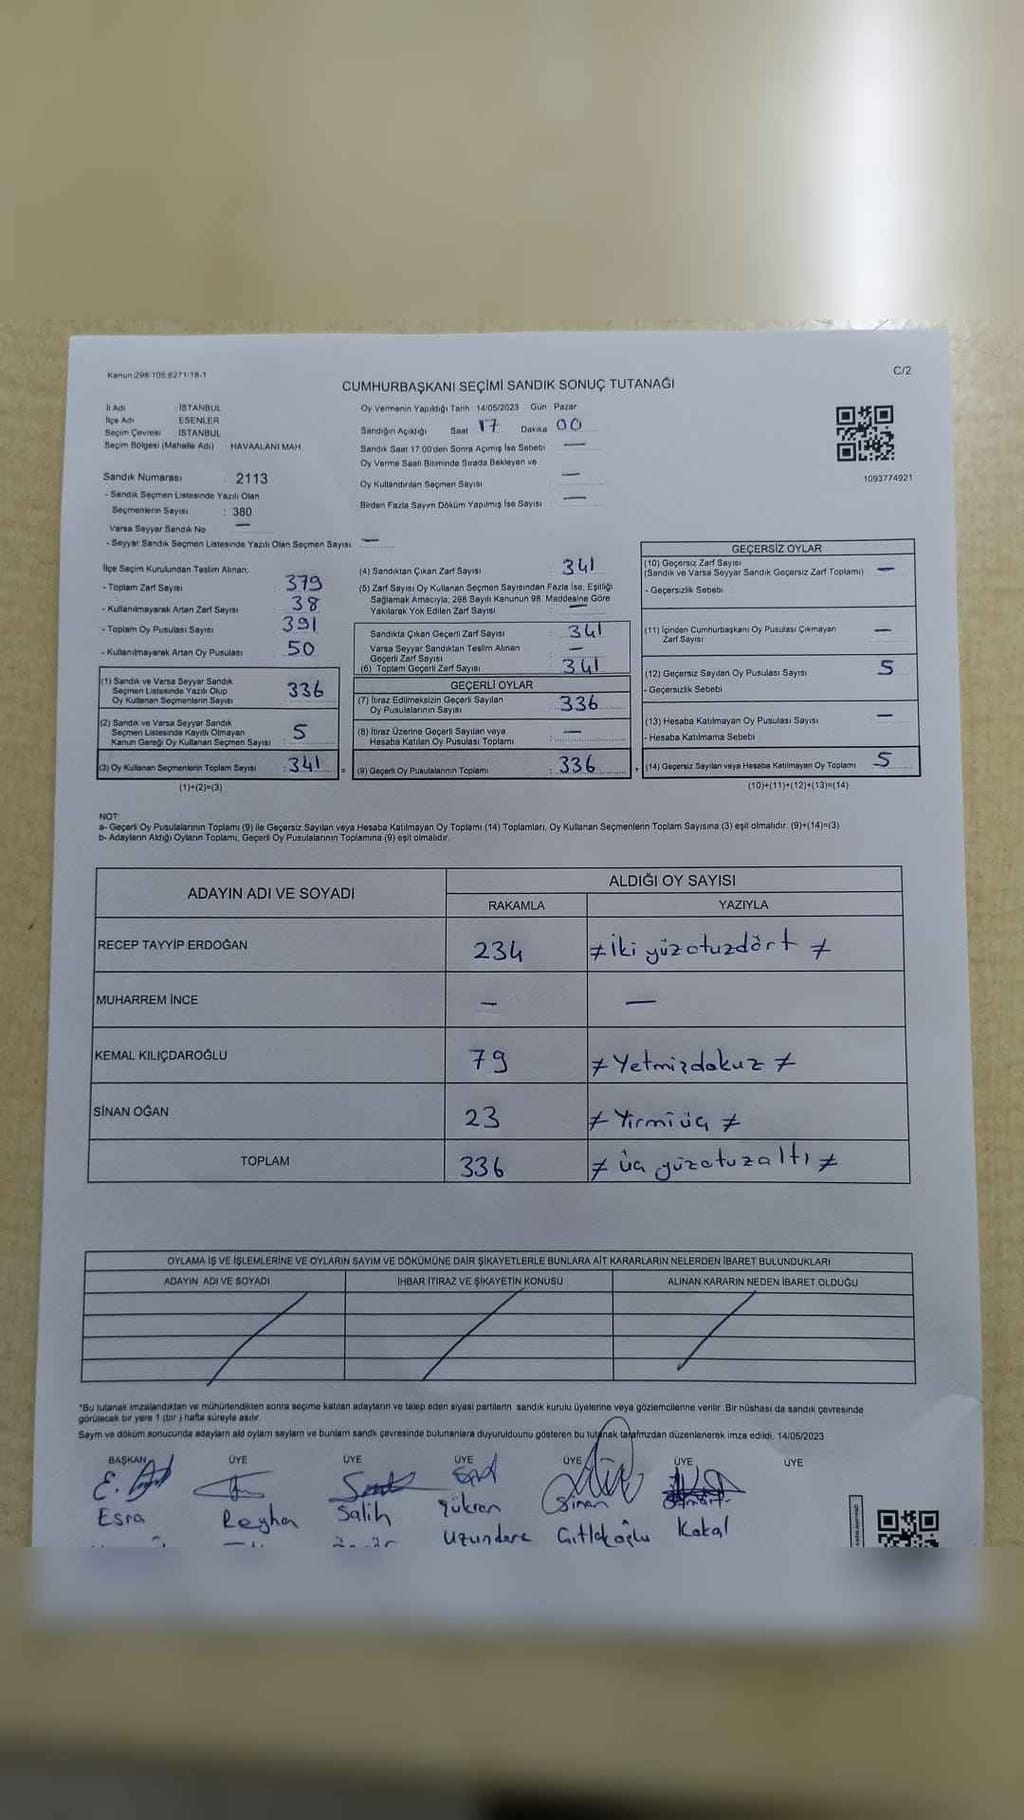 Kanun:298/105,6271/18-1
C/2
CUMHURBAŞKANI SEÇİMİ SANDIK SONUÇ TUTANAĞI
İl Adı : İSTANBUL
İlçe Adı : ESENLER
Seçim Çevresi : İSTANBUL
Seçim Bölgesi (Mahalle Adı) : HAVAALANI MAH.
Sandık Numarası : 2113
- Sandık Seçmen Listesinde Yazılı Olan
Seçmenlerin Sayısı : 380
Varsa Seyyar Sandık No —
- Seyyar Sandık Seçmen Listesinde Yazılı Olan Seçmen Sayısı —
Oy Vermenin Yapıldığı Tarih 14/05/2023 Gün Pazar
Sandığın Açıldığı Saat 17 Dakika 00
Sandık Saat 17:00'den Sonra Açılmış İse Sebebi —
Oy Verme Saati Bitiminde Sırada Bekleyen ve
Oy Kullandırılan Seçmen Sayısı —
Birden Fazla Sayım Döküm Yapılmış İse Sayısı —
1093774921
İlçe Seçim Kurulundan Teslim Alınan;
- Toplam Zarf Sayısı 379
- Kullanılmayarak Artan Zarf Sayısı 38
- Toplam Oy Pusulası Sayısı 391
- Kullanılmayarak Artan Oy Pusulası 50
(1) Sandık ve Varsa Seyyar Sandık
Seçmen Listesinde Yazılı Olup
Oy Kullanan Seçmenlerin Sayısı 336
(2) Sandık ve Varsa Seyyar Sandık
Seçmen Listesinde Kayıtlı Olmayan
Kanun Gereği Oy Kullanan Seçmen Sayısı 5
(3) Oy Kullanan Seçmenlerin Toplam Sayısı : 341
(1)+(2)=(3)
(4) Sandıktan Çıkan Zarf Sayısı : 341
(5) Zarf Sayısı Oy Kullanan Seçmen Sayısından Fazla İse, Eşitliği
Sağlamak Amacıyla; 298 Sayılı Kanunun 98. Maddesine Göre
Yakılarak Yok Edilen Zarf Sayısı —
Sandıkta Çıkan Geçerli Zarf Sayısı : 341
Varsa Seyyar Sandıktan Teslim Alınan
Geçerli Zarf Sayısı —
(6) Toplam Geçerli Zarf Sayısı : 341
GEÇERLİ OYLAR
(7) İtiraz Edilmeksizin Geçerli Sayılan
Oy Pusulalarının Sayısı : 336
(8) İtiraz Üzerine Geçerli Sayılan veya
Hesaba Katılan Oy Pusulası Toplamı : —
= (9) Geçerli Oy Pusulalarının Toplamı : 336
GEÇERSİZ OYLAR
(10) Geçersiz Zarf Sayısı
(Sandık ve Varsa Seyyar Sandık Geçersiz Zarf Toplamı) —
- Geçersizlik Sebebi
(11) İçinden Cumhurbaşkanı Oy Pusulası Çıkmayan
Zarf Sayısı —
(12) Geçersiz Sayılan Oy Pusulası Sayısı 5
- Geçersizlik Sebebi
(13) Hesaba Katılmayan Oy Pusulası Sayısı —
- Hesaba Katılmama Sebebi
+ (14) Geçersiz Sayılan veya Hesaba Katılmayan Oy Toplamı 5
(10)+(11)+(12)+(13)=(14)
NOT:
a- Geçerli Oy Pusulalarının Toplamı (9) ile Geçersiz Sayılan veya Hesaba Katılmayan Oy Toplamı (14) Toplamları, Oy Kullanan Seçmenlerin Toplam Sayısına (3) eşit olmalıdır. (9)+(14)=(3)
b- Adayların Aldığı Oyların Toplamı, Geçerli Oy Pusulalarının Toplamına (9) eşit olmalıdır.
ADAYIN ADI VE SOYADI
ALDIĞI OY SAYISI
RAKAMLA YAZIYLA
RECEP TAYYİP ERDOĞAN 234 ≠ İki yüzotuzdört ≠
MUHARREM İNCE — —
KEMAL KILIÇDAROĞLU 79 ≠ Yetmişdokuz ≠
SİNAN OĞAN 23 ≠ Yirmiüç ≠
TOPLAM 336 ≠ üç yüzotuzaltı ≠
OYLAMA İŞ VE İŞLEMLERİNE VE OYLARIN SAYIM VE DÖKÜMÜNE DAİR ŞİKAYETLERLE BUNLARA AİT KARARLARIN NELERDEN İBARET BULUNDUKLARI
ADAYIN ADI VE SOYADI İHBAR İTİRAZ VE ŞİKAYETİN KONUSU ALINAN KARARIN NEDEN İBARET OLDUĞU
*Bu tutanak imzalandıktan ve mühürlendikten sonra seçime katılan adayların ve talep eden siyasi partilerin sandık kurulu üyelerine veya gözlemcilerine verilir. Bir nüshası da sandık çevresinde
görülecek bir yere 1 (bir) hafta süreyle asılır.
Sayım ve döküm sonucunda adayların aldı oyların sayıların ve bunların sandık çevresinde bulunanlara duyurulduunu gösteren bu tutanak tarafımızdan düzenlenerek imza edildi. 14/05/2023
BAŞKAN ÜYE ÜYE ÜYE ÜYE ÜYE ÜYE
Esra Reyhan Salih Şükran Sinan
Uzundere Çıtlakoğlu Kakal